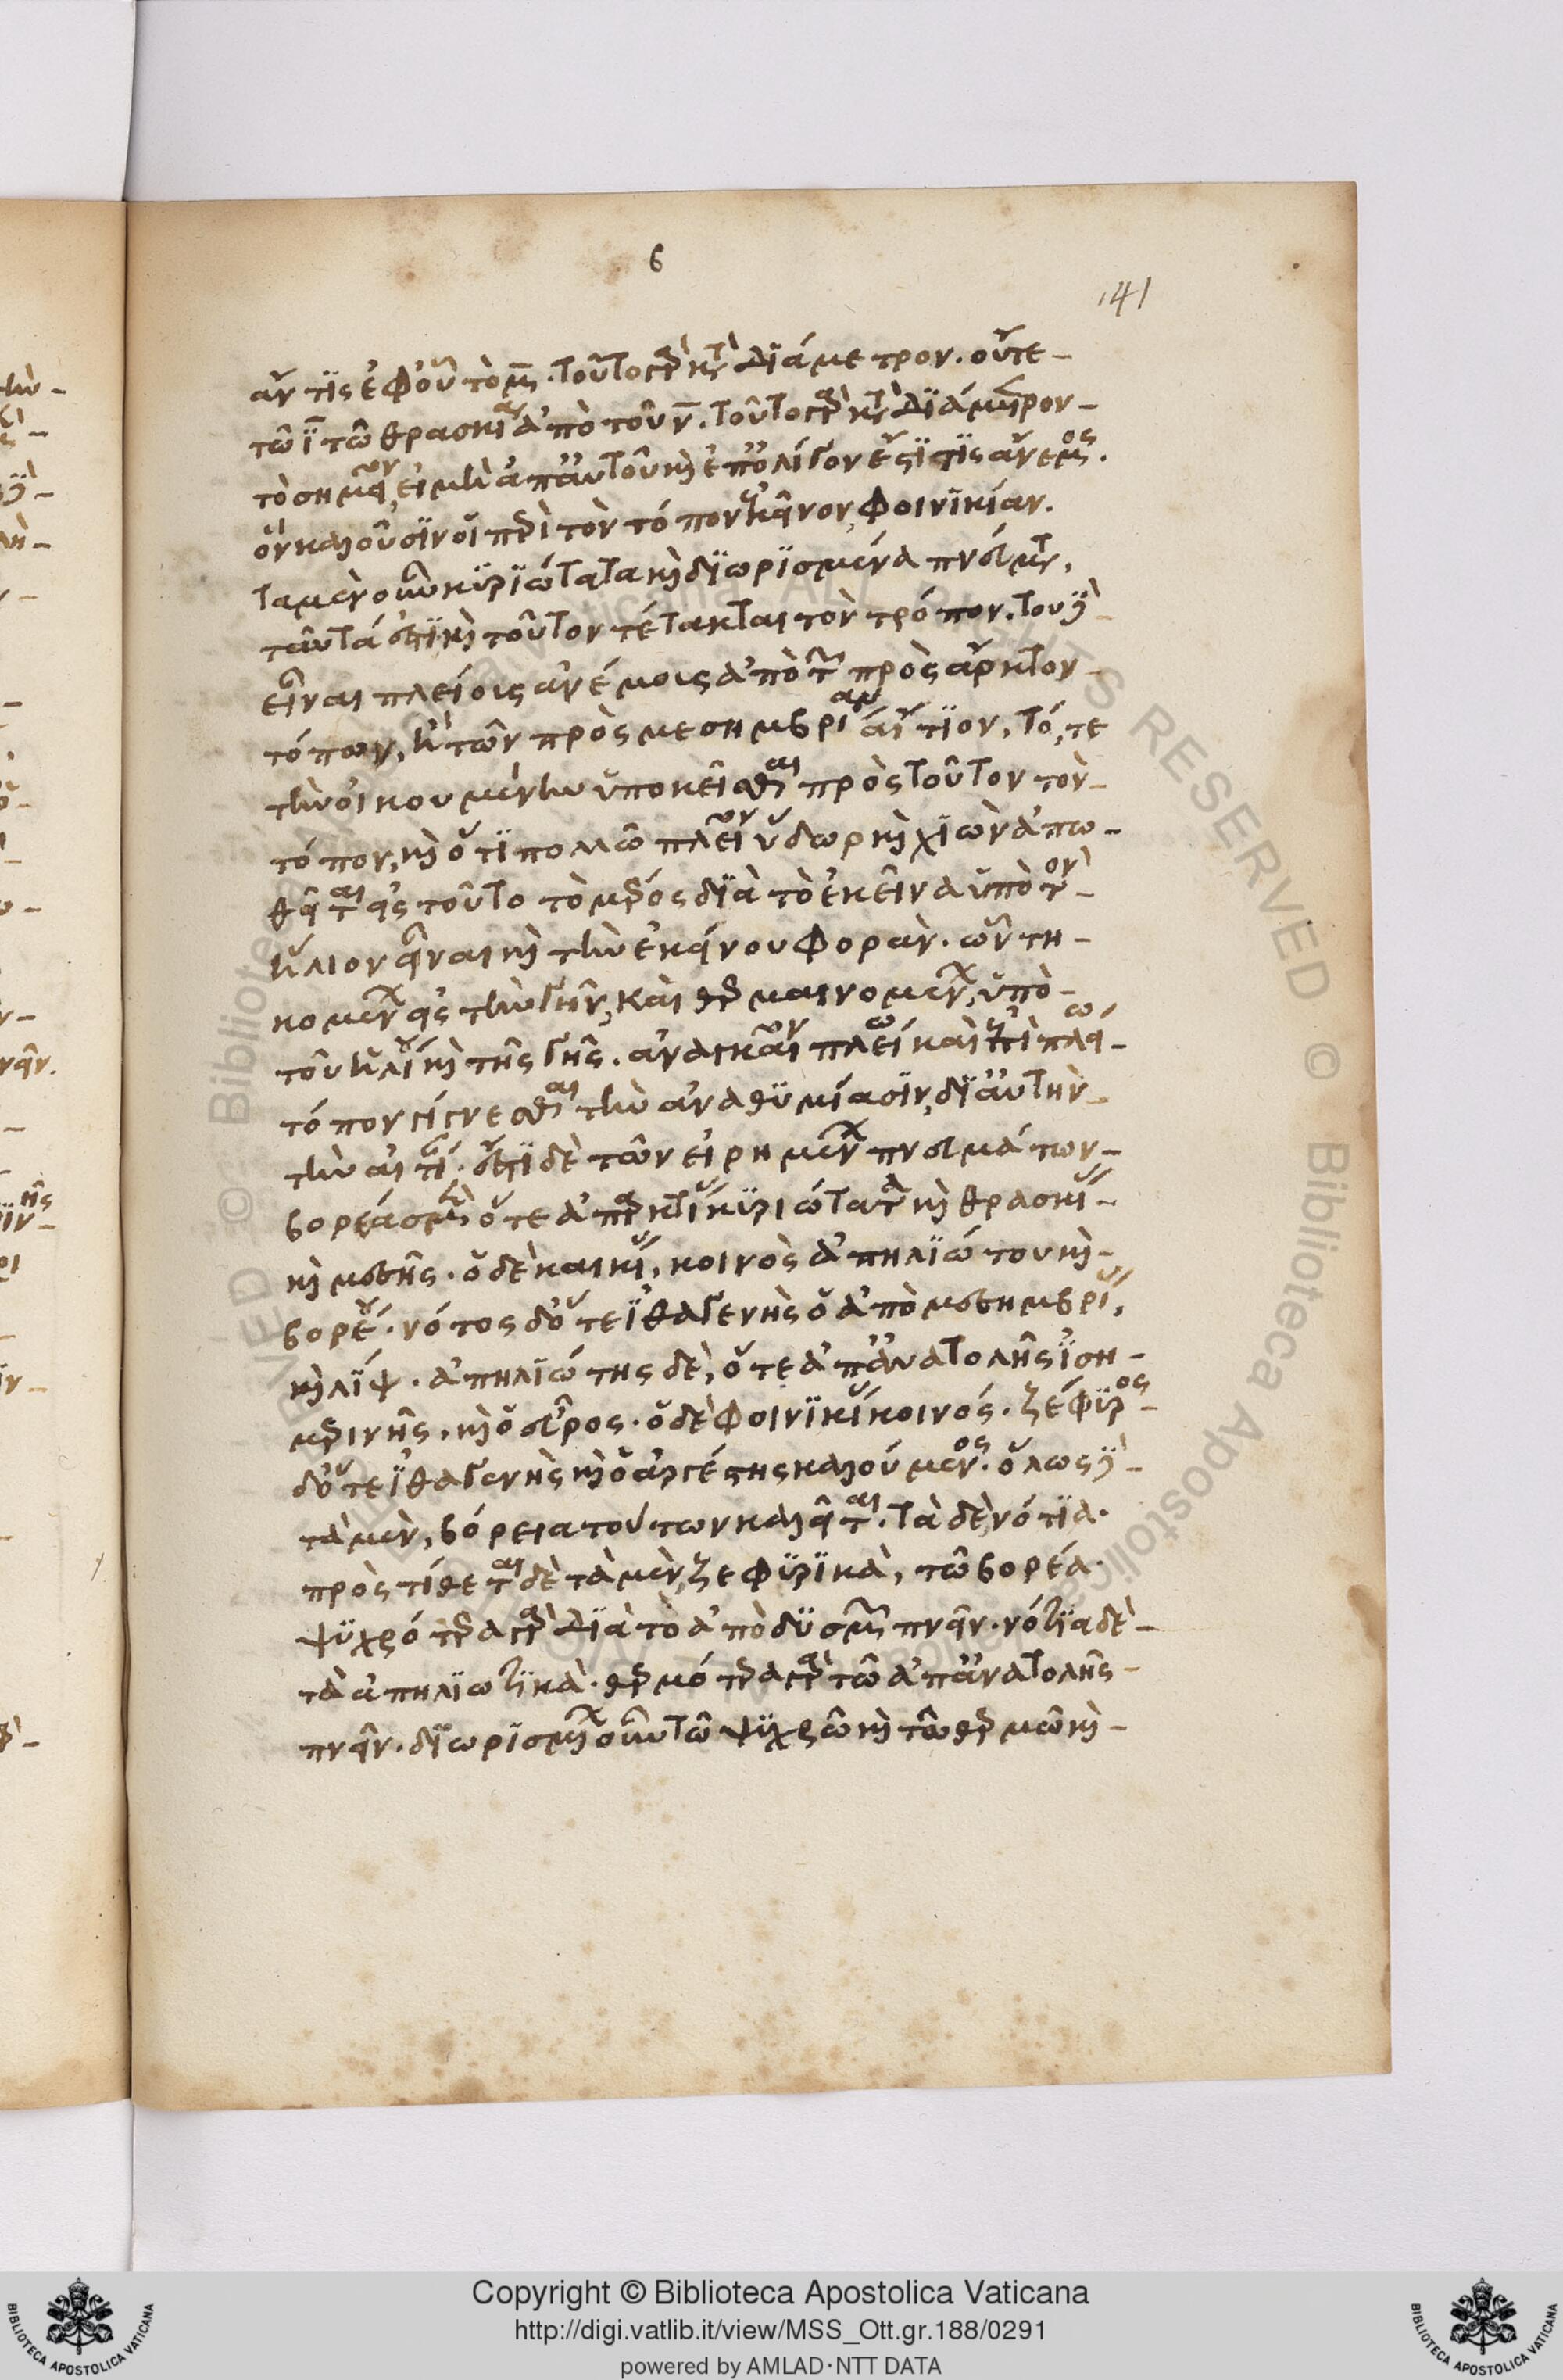 6
141
ἄν τις ἐφ' οὗ τὸ μ̅. τοῦτο γὰρ κατὰ διάμετρον. οὔτε
τῷ ι̅ τῷ θρασκίᾳ ἀπὸ τοῦ ν̅. τοῦτο γὰρ κατὰ διάμετρον
τὸ σημεῖον, εἰ μὴ ἀπ' αὐτοῦ καὶ ἐπ' ὀλίγον ἐστί τις ἄνεμος.
ὃν καλοῦσιν οἱ περὶ τὸν τόπον ἐκεῖνον, φοινικίαν.
τὰ μὲν οὖν κυριώτατα καὶ διωρισμένα πνεύματα,
ταῦτά ἐστι καὶ τοῦτον τέτακται τὸν τρόπον. τοῦ δ'
εἶναι πλείους ἀνέμους ἀπὸ τῶν πρὸς ἄρκτον
τόπων, ἢ τῶν πρὸς μεσημβρίαν αἴτιον, τό, τε
τὴν οἰκουμένην ὑποκεῖσθαι πρὸς τοῦτον τὸν
τόπον, καὶ ὅτι πολλῷ πλεῖον ὕδωρ καὶ χιὼν ἀπω
θεῖται εἰς τοῦτο τὸ μέρος διὰ τὸ ἐκεῖνα ὑπὸ τὸν
ἥλιον εἶναι καὶ τὴν ἐκείνου φοράν. ὧν τη
κομένων εἰς τὴν γῆν, καὶ θερμαινομένων, ὑπὸ
τοῦ ἡλίου καὶ τῆς γῆς. ἀναγκαῖον πλείω καὶ ἐπὶ πλείω
τόπον γίγνεσθαι τὴν ἀναθυμίασιν, δι' αὐτὴν
τὴν αἰτίαν. ἔστι δὲ τῶν εἰρημένων πνευμάτων
βορέας μὲν ὅ τε ἀπαρκτίας κυριώτατα καὶ θρασκίας
καὶ μέσης. ὁ δὲ καικίας, κοινὸς ἀπηλιώτου καὶ
βορέου. νότος δ' ὅ τε ἰθαγενὴς ὁ ἀπὸ μεσημβρίας,
καὶ λίψ. ἀπηλιώτης δὲ, ὅ τε ἀπ' ἀνατολῆς ἰση
μερινῆς, καὶ ὁ εὖρος. ὁ δὲ φοινικίας κοινός. ζέφυρος
δ' ὅ τε ἰθαγενὴς καὶ ὁ ἀργέστης καλούμενος. ὅλως δὲ
τὰ μὲν, βόρεια τούτων καλεῖται. τὰ δὲ, νότια.
προστίθεται δὲ τὰ μὲν, ζεφυρικὰ, τῷ βορέᾳ.
ψυχρότερα γὰρ διὰ τὸ ἀπὸ δυσμῶν πνεῖν. νότια δὲ
τὰ ἀπηλιωτικά. θερμότερα γὰρ τῷ ἀπ' ἀνατολῆς
πνεῖν. διωρισμένων οὖν τῷ ψυχρῷ καὶ τῷ θερμῷ καὶ
Copyright © Biblioteca Apostolica Vaticana
http://digi.vatlib.it/view/MSS_Ott.gr.188/0291
powered by AMLAD·NTT DATA